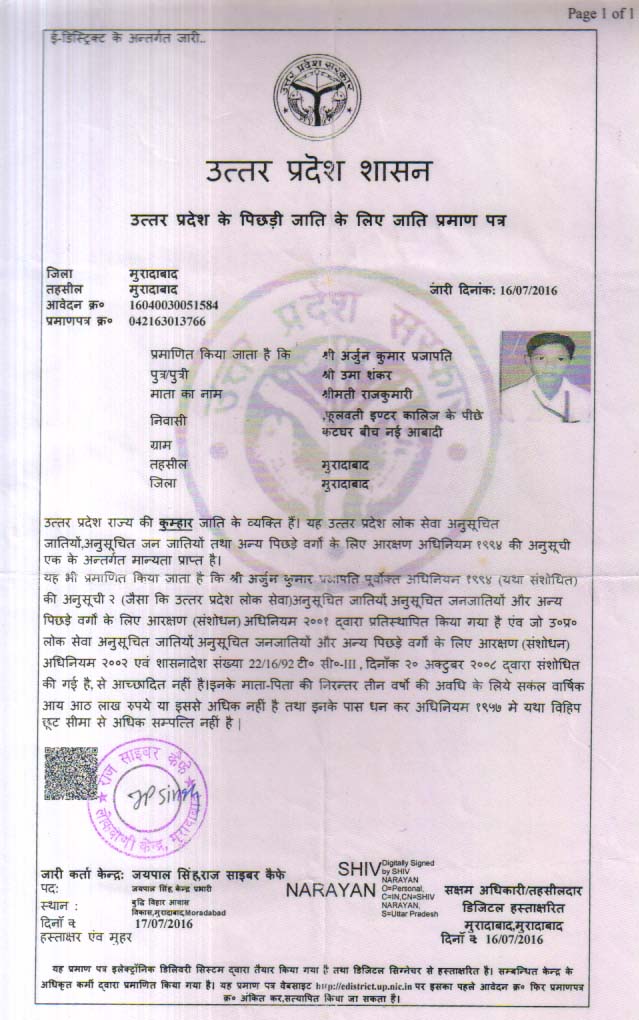 Page 1 of 1
ई-डिस्ट्रिक्ट के अन्तर्गत जारी..
उत्तर प्रदेश सरकार
उत्तर प्रदेश शासन
उत्तर प्रदेश के पिछड़ी जाति के लिए जाति प्रमाण पत्र
जिला मुरादाबाद
तहसील मुरादाबाद जारी दिनांक: 16/07/2016
आवेदन क्र० 16040030051584
प्रमाणपत्र क्र० 042163013766
प्रमाणित किया जाता है कि श्री अर्जुन कुमार प्रजापति
पुत्र/पुत्री श्री उमा शंकर
माता का नाम श्रीमती राजकुमारी
निवासी ,फूलवती इण्टर कालिज के पीछे
कटघर बीच नई आबादी
ग्राम
तहसील मुरादाबाद
जिला मुरादाबाद
उत्तर प्रदेश राज्य की कुम्हार जाति के व्यक्ति हैं। यह उत्तर प्रदेश लोक सेवा अनुसूचित
जातियों,अनुसूचित जन जातियों तथा अन्य पिछड़े वर्गो के लिए आरक्षण अधिनियम १९९४ की अनुसूची
एक के अन्तर्गत मान्यता प्राप्त है।
यह भी प्रमाणित किया जाता है कि श्री अर्जुन कुमार प्रजापति पूर्वोक्त अधिनियम १९९४ (यथा संशोधित)
की अनुसूची २ (जैसा कि उत्तर प्रदेश लोक सेवा)अनुसूचित जातियों,अनुसूचित जनजातियों और अन्य
पिछड़े वर्गो के लिए आरक्षण (संशोधन) अधिनियम २००१ द्वारा प्रतिस्थापित किया गया है एंव जो उ०प्र०
लोक सेवा अनुसूचित जातियों,अनुसूचित जनजातियों और अन्य पिछड़े वर्गो के लिए आरक्षण (संशोधन)
अधिनियम २००२ एवं शासनादेश संख्या 22/16/92 टी० सी०-III , दिनॉक २० अक्टुबर २००८ द्वारा संशोधित
की गई है, से आच्छादित नहीं है।इनके माता-पिता की निरन्तर तीन वर्षो की अवधि के लिये सकल वार्षिक
आय आठ लाख रुपये या इससे अधिक नहीं है तथा इनके पास धन कर अधिनियम १९५७ मे यथा विहिप
छूट सीमा से अधिक सम्पत्ति नहीं है |
राज साइबर कैफे
JP singh
लोकवाणी केन्द्र, मुरादाबाद
जारी कर्ता केन्द्र: जयपाल सिंह,राज साइबर कैफे
पद: जयपाल सिंह, केन्द्र प्रभारी
स्थान : बुद्धि विहार आवास
विकास,मुरादाबाद,Moradabad
दिनॉक 17/07/2016
हस्ताक्षर एंव मुहर
SHIV
NARAYAN
Digitally Signed
by SHIV
NARAYAN
O=Personal,
C=IN,CN=SHIV
NARAYAN,
S=Uttar Pradesh
सक्षम अधिकारी/तहसीलदार
डिजिटल हस्ताक्षरित
मुरादाबाद,मुरादाबाद
दिनॉक 16/07/2016
यह प्रमाण पत्र इलेक्ट्रॉनिक डिलिवरी सिस्टम द्वारा तैयार किया गया है तथा डिजिटल सिग्नेचर से हस्ताक्षरित है। सम्बन्धित केन्द्र के
अधिकृत कर्मी द्वारा प्रमाणित किया गया है। यह प्रमाण पत्र वेबसाइट http://edistrict.up.nic.in पर इसका पहले आवेदन क्र० फिर प्रमाणपत्र
क्र० अंकित कर,सत्यापित किया जा सकता है।